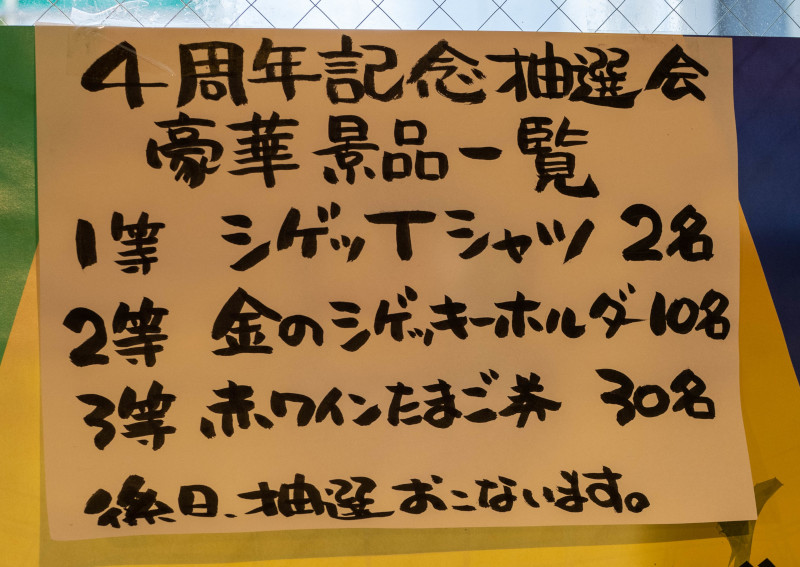 4周年記念抽選会
豪華景品一覧
1等 シゲッTシャツ 2名
2等 金のシゲッキーホルダー10名
3等 赤ワインたまご券 30名
後日、抽選おこないます。